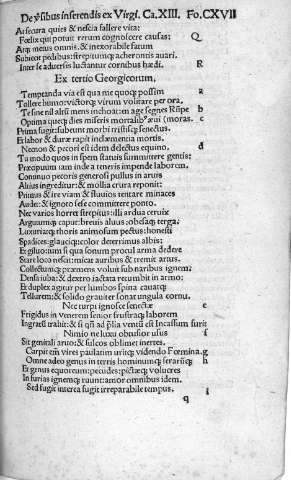 De ṽsibus inserendis ex Virgi. Ca.XIII. Fo.CXVII
At secura quies & nescia fallere vita:
Fœlix qui potuit rerum cognoscere causas: Q
Atq; metus omnis & inexorabile fatum
Subiecit pedibus: strepitumq; acherontis auari.
Inter se aduersis luctantur cornibus hœdi. R
Ex tertio Georgicorum,
Temptanda via est qua me quoq; possem a
Tollere humo: victorq; virum volitare per ora,
Te sine nil altũ mens inchoat: en age segnes Rũpe b
Optima queq; dies miseris mortalibꝰ æui (moras. c
Prima fugit: subeunt morbi tristisq; senectus.
Et labor & duræ rapit inclæmentia mortis.
Necnon & pecori est idem delectus equino, d
Tu modo quos in spem statuis summittere gentis:
Præcipuum iam inde a teneris impende laborem,
Continuo pecoris generosi pullus in aruis
Altius ingreditur: & mollia crura reponit:
Primus & ire viam & fluuios tentare minaces
Audet: & ignoto sese committere ponto.
Nec varios horret strepitus: illi ardua ceruix
Argutumq; caput: breuis aluus: obesaq; terga:
Luxuriatq; thoris animosum pectus: honesti
Spadices: glauciq;: color deterrimus albis:
Et giluo: tum si qua sonum procul arma dedere
Stare loco nescit: micat auribus & tremit artus.
Collectumq; præmens voluit sub naribus ignem:
Densa iuba: & dextro iactata recumbit in armo:
Et duplex agitur per lumbos spina: cauatq;
Tellurem: & solido grauiter sonat ungula cornu.
Nec turpi ignosce senectæ e
Frigidus in Venerem senior frustraq; laborem
Ingratũ trahit: & si qñ ad p̃lia ventũ est Incassum furit
Nimio ne luxu obtusior usus f
Sit genitali aruo: & sulcos oblimet inertes.
Carpit em̃ vires paulatim uritq; videndo Fœmina. g
Omne adeo genus in terris hominumq; ferarũq; h
Et genus equoreum: pecudes: pictæq; volucres
In furias ignemq; ruunt: amor omnibus idem.
Sed fugit interea fugit irreparabile tempus, i
q